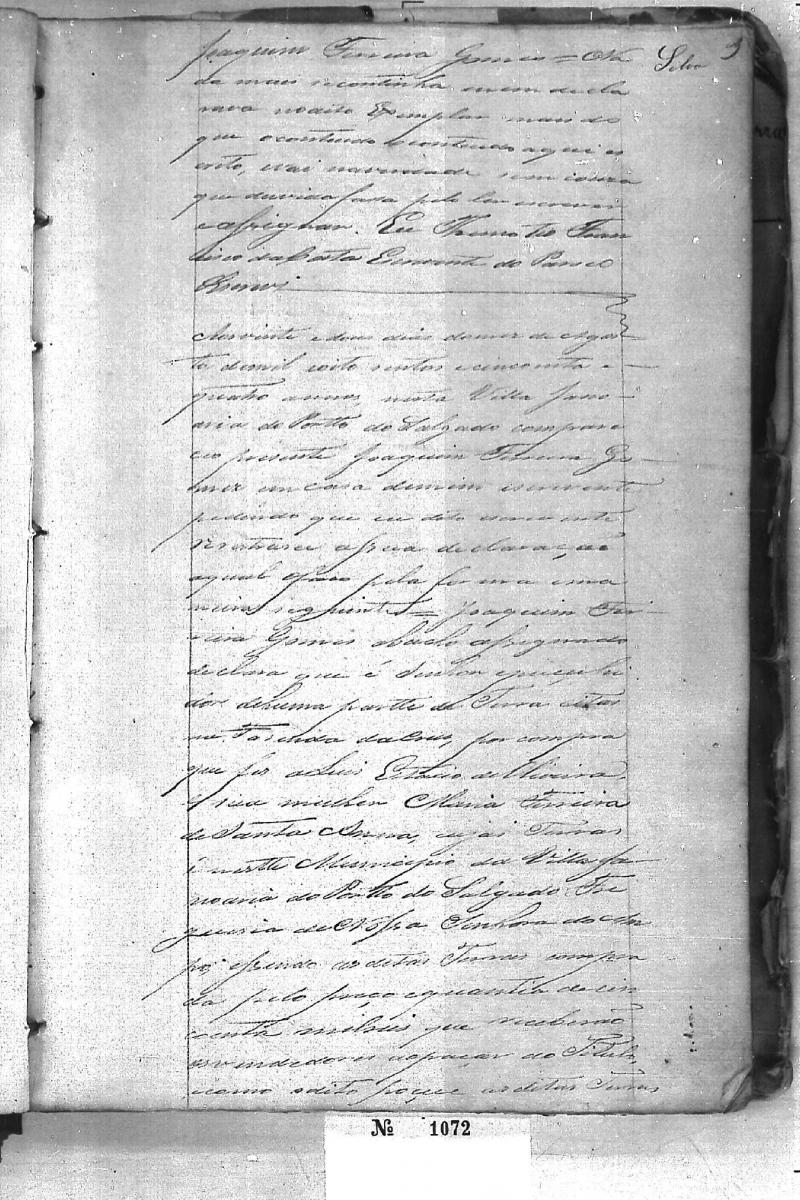 Joaquim Ferreira Gomes = Na
da mais se continha nem decla
rava no dito Exemplar mais do
que o contiudo contiudo aqui es
crito, e vai na verdade sem couza
que duvida fassa pelo ler escrever
e assignar. Eu Thimotio Fran
cisco da Costa Escrivente do Paroco
Escrevi
Aos vinte e dous dias do mez de Agos
to de mil oito sentos e cincoenta e
quatro annos, nesta Villa Janu
aria do Portto do Salgado compare
ceo prezente Joaquim Ferreira Go
mez em casa de mim escrevente
pedindo que eu dito escrevente
registrasse a sua declaração
a qual o faço pela forma e ma
neira seguinte = Joaquim Fer
reira Gomes abaixo assignado
declara que é Senhor e possui
dor de huma partte de Terra citas
na Fazenda da Cruz, por compra
que fes a Luis Estacio de Oliveira,
e sua mulher Maria Ferreira
de Santa Anna, cujas Terras
é nestte Municipio da Villa Ja
nuaria do Portto do Salgado Fre
guezia de Nossa Senhora do Am
paro, essendo as ditas Terras compra
da pelo preço e quantia de cin
coenta milreis que receberão
os vendedores ao passar do Titulo,
como o dito possue as ditas Terras
3
Silva
Nº 1072